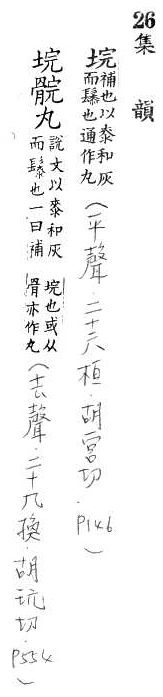 26
集韻
垸補也以桼和灰而髹也通作丸(平聲.二十六桓.胡官切.P146)
垸䯘丸說文以桼和灰而髹也一曰補垸也或从骨亦作丸(去聲.二十九換.胡玩切.P554)